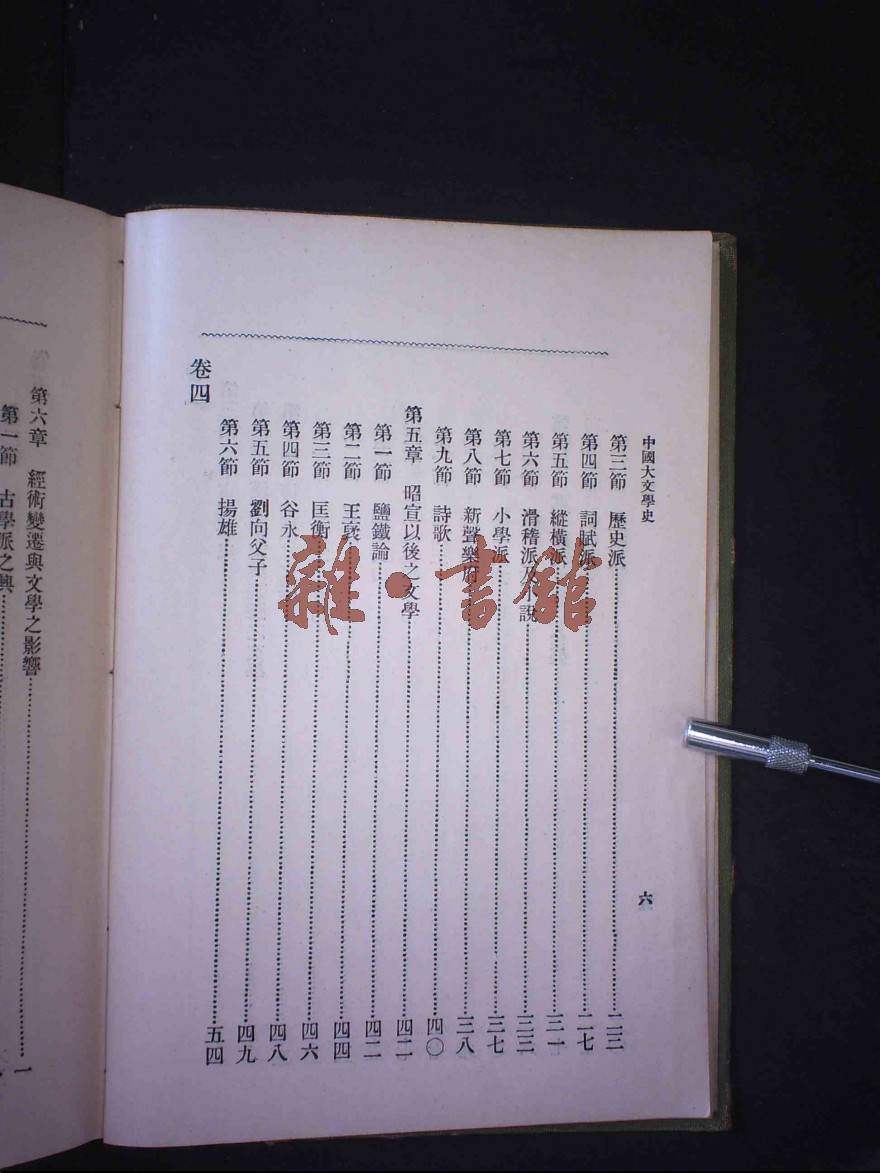 中國大文學史 六
第三節 歷史派 二三
第四節 詞賦派 二七
第五節 縱橫派 三一
第六節 滑稽派及小說 三三
第七節 小學派 三七
第八節 新聲樂府 三八
第九節 詩歌 四〇
第五章 昭宣以後之文學 四二
第一節 鹽鐵論 四二
第二節 王褒 四四
第三節 匡衡 四六
第四節 谷永 四八
第五節 劉向父子 四九
第六節 揚雄 五四
卷四
第六章 經術變遷與文學之影響 一
第一節 古學派之興
雜·書館